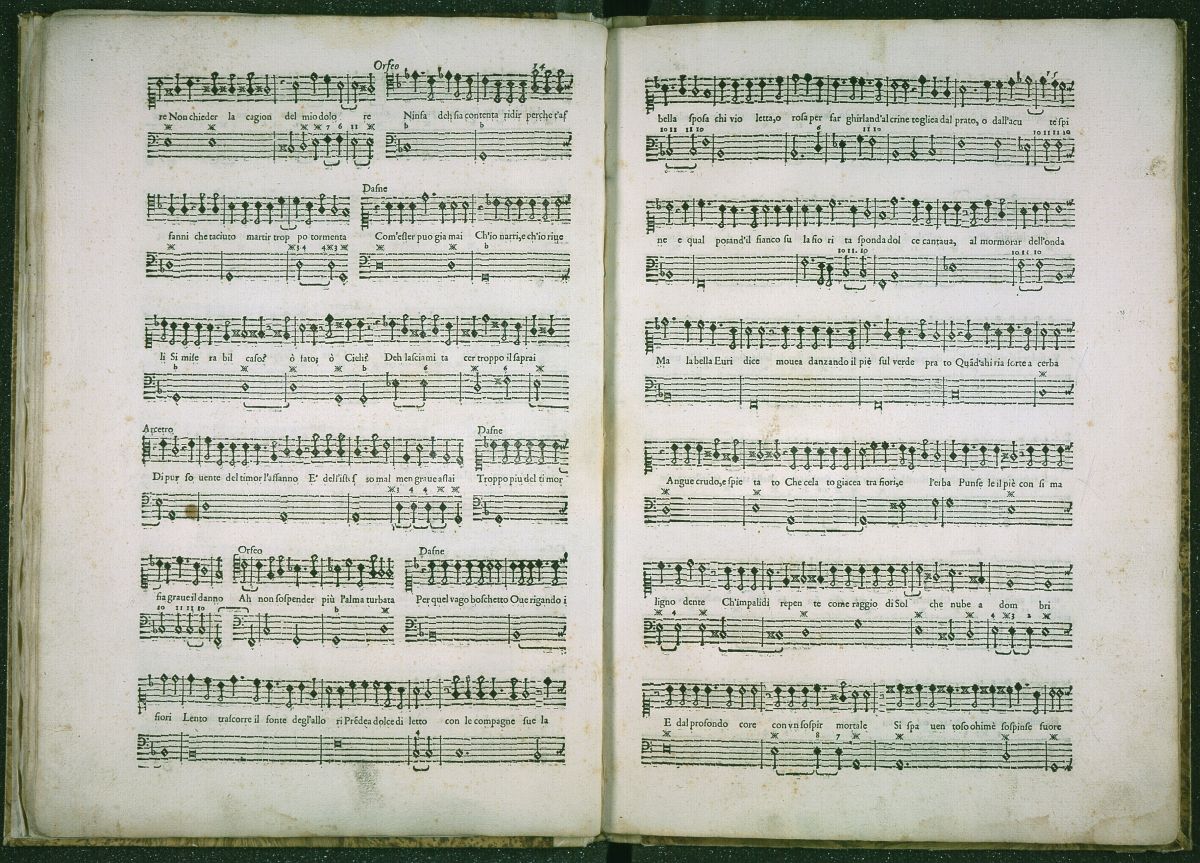 Orfeo 14
re Non chieder la cagion del mio dolo re Ninfa deh sia contenta ridir perche t'af
Dafne
fanni che taciuto martir trop po tormenta Com'esser puo gia mai Ch'io narri, e ch'io riue
li Si mise ra bil caso? ò fato; ò Cieli? Deh lasciami ta cer troppo il saprai
Arcetro Dafne
Di pur so uente del timor l'affanno E' dell'istes so mal men graue assai Troppo piu del timor
Orfeo Dafne
fia graue il danno Ah non sospender più l'alma turbata Per quel vago boschetto Oue rigando i
fiori Lento trascorre il fonte degl'allo ri Prẽdea dolce di letto con le compagne sue la
15
bella sposa chi vio letta, o rosa per far ghirland'al crine togliea dal prato, o dall'acu te spi
ne e qual posand'il fianco su la fio ri ta sponda dol ce cantaua, al mormorar dell'onda
Ma la bella Euri dice mouea danzando il piè sul verde pra to Quãd'ahi ria sorte a cerba
Angue crudo, e spie ta to Che cela to giacea tra fiori, e l'erba Punse le il piè con si ma
ligno dente Ch'impalidi repen te come raggio di Sol che nube a dom bri
E dal profondo core con vn sospir mortale Si spa uen toso ohimè sospinse fuore